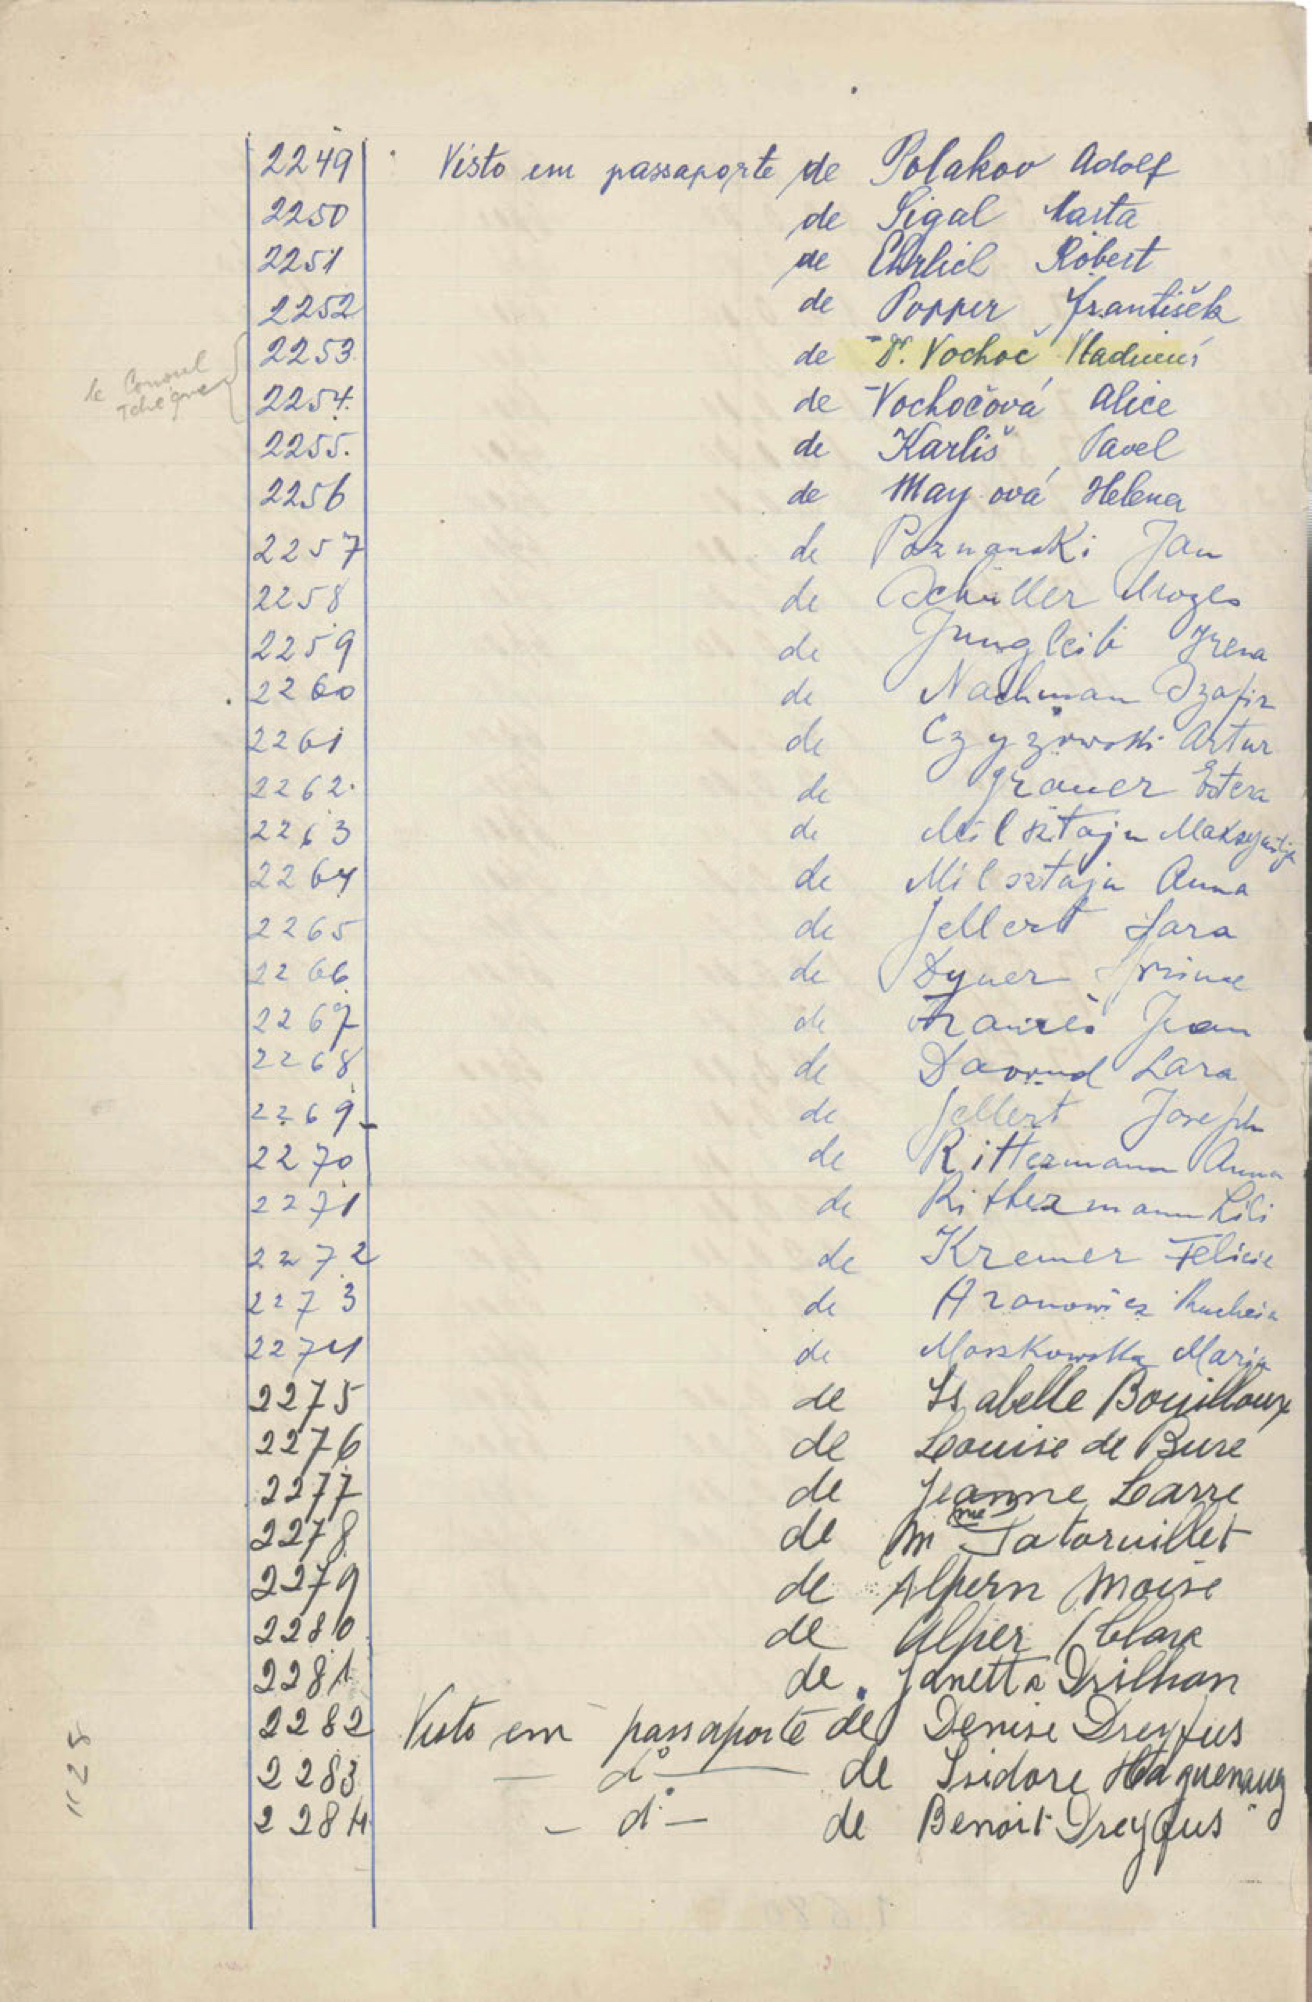 2249 Visto em passaporte de Polakov Adolf
2250 de Sigal Marta
2251 de Ehrlich Robert
2252 de Popper František
2253 de Dr. Vochoč Vladimír
le Consul
Tchéque
2254. de Vochočová Alice
2255. de Karliš Pavel
2256 de Mayová Helena
2257 de Poznanski Jan
2258 de Schüller
2259 de Jungleib Irena
2260 de Nachman Szafir
2261 de Czyzowski Artur
2262. de Grauer Estera
2263 de Milsztajn
2264 de Milsztajn Anna
2265 de Jellert Sara
2266 de Dyner
2267 de Jean
2268 de Lara
2269 de Jellert Joseph
2270 de Rittermann Anna
2271 de Rittermann Lili
2272 de Kremer Felicie
2273 de Aronowicz
2274 de Moszkowska Maria
2275 de Isabelle Bouilloux
2276 de Louise de Bure
2277 de Jeanne Larre
2278 de Mme
2279 de Alpern Moise
2280 de Alper Clara
2281 de Janetta Drilhon
2282 Visto em passaporte de Denise Dreyfus
2283 — do — de Isidore Haguenauer
2284 — do — de Benoit Dreyfus